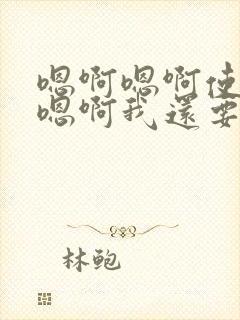 嗯啊嗯啊使
嗯啊我还要
林鲍